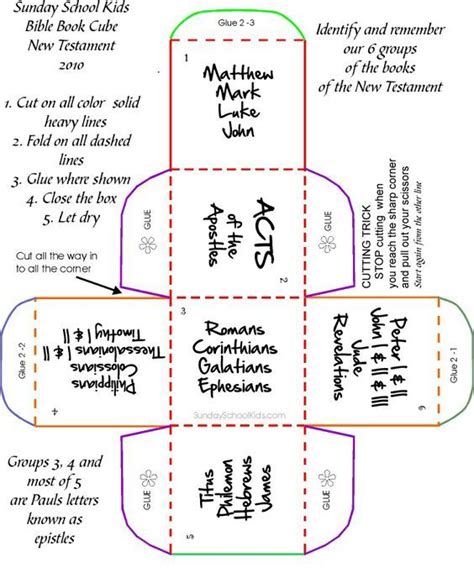 Sunday School Kids
Bible Book Cube
New Testament
2010
1. Cut on all color solid
heavy lines
2. Fold on all dashed
lines
3. Glue where shown
4. Close the box
5. Let dry
Cut all the way in
to all the corner
Groups 3, 4 and
most of 5
are Pauls letters
known as
epistles
Identify and remember
our 6 groups
of the books
of the New Testament
CUTTING TRICK
STOP cutting when
you reach the sharp corner
and pull out your scissors
Start again from the other line
Glue 2 -3
1
Matthew
Mark
Luke
John
GLUE
ACTS
of the
Apostles
2
GLUE
Glue 2 -2
Philippians
Colossians
Thessalonians I & II
Timothy I & II
4
3
Romans
Corinthians
Galatians
Ephesians
SundaySchoolKids.com
Peter I & II
John I & II & III
Jude
Revelations
6
Glue 2 -1
GLUE
Titus
Philemon
Hebrews
James
5
GLUE